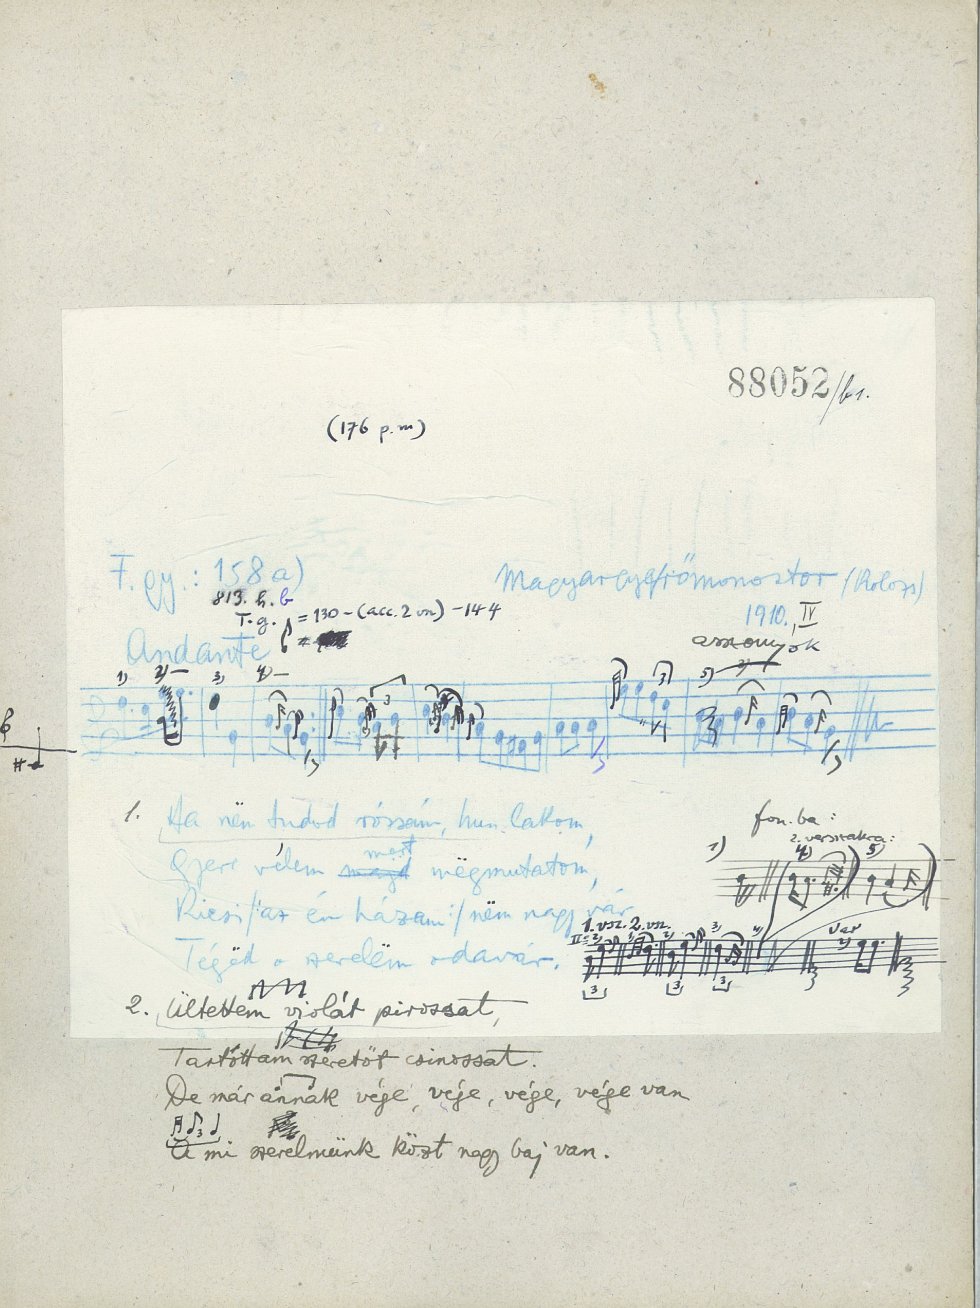 88052/b1.
(176 p.m)
F. gy.: 158 a)
Magyargyerőmonostor (Kolozs)
813. h. b
T. g. = 130 - (acc. 2 vn) - 144
1910. IV
Andante
asszonyok
1) 2) 3) 4) 5)
3
3
1. Ha nën tudod rózsám, hun lakom,
Gyere vélem mert mëgmutatom,
Kicsi /: az én házam :/ nëm nagy vár
Tégëd a szerelëm odavár.
fon. ba:
2. versszakra:
1) 4) 5)
1. vsz. 2. vsz.
var
3 3 3
2. Ültettem violát pirossat,
Tartottam szeretőt csinossat.
De már annak vége, vége, vége, vége van
A mi szerelmünk közt nagy baj van.